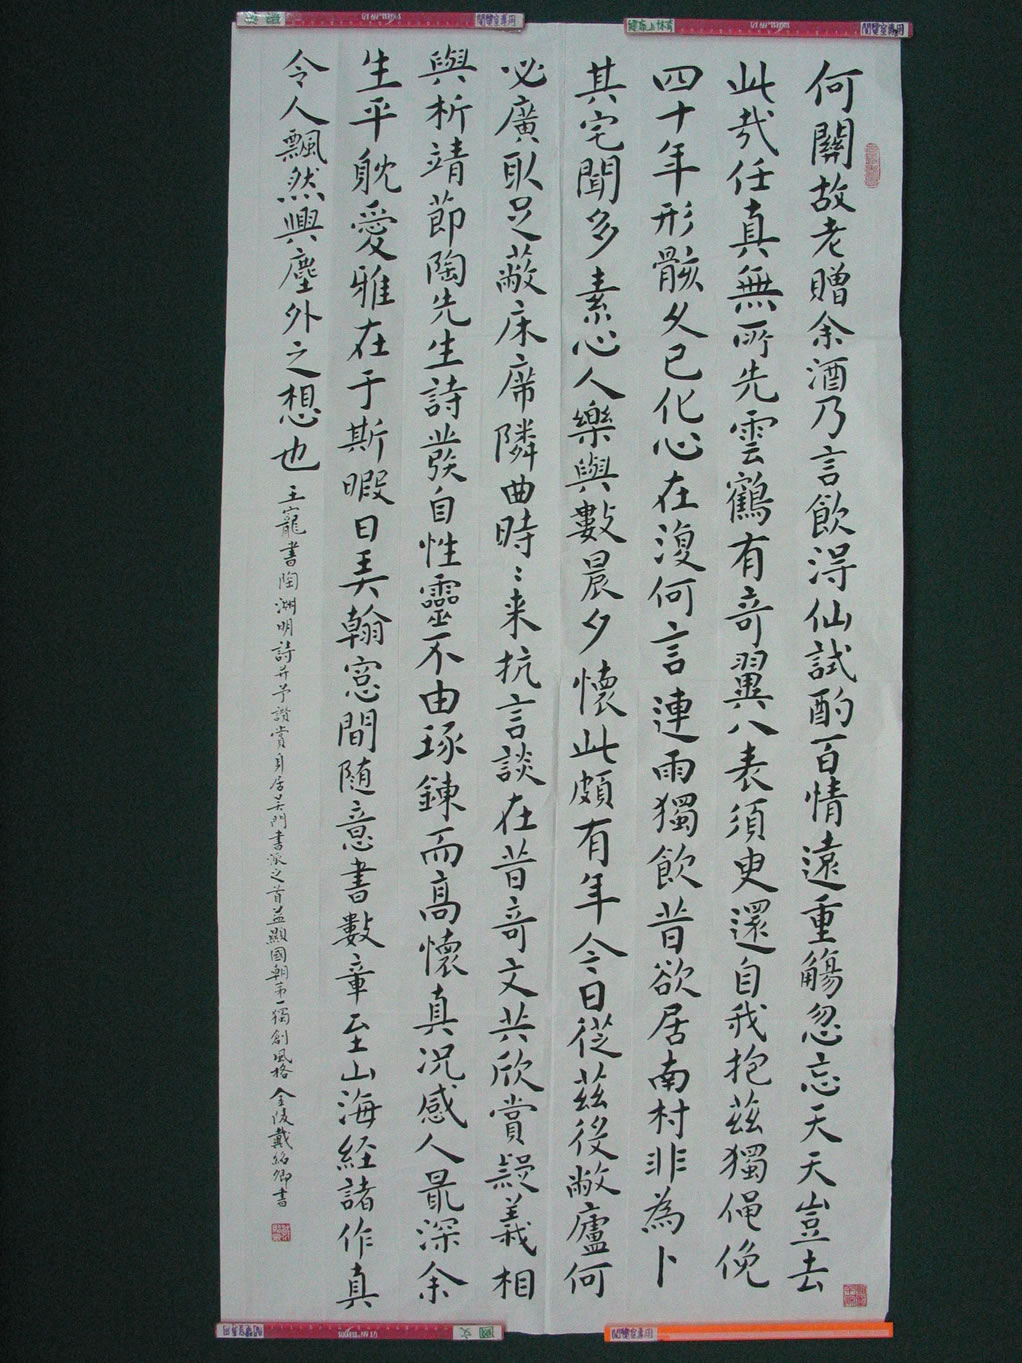 何關故老贈余酒乃言飲得仙試酌百情遠重觴忽忘天天豈去
此哉任真無所先雲鶴有奇翼八表須臾還自我抱茲獨僶俛
四十年形骸久已化心在復何言連雨獨飲昔欲居南村非為卜
其宅聞多素心人樂與數晨夕懷此頗有年今日從茲役敝廬何
必廣取足蔽床席隣曲時〻来抗言談在昔奇文共欣賞疑義相
與析靖節陶先生詩發自性靈不由琢鍊而高懷真況感人最深余
生平躭愛雅在于斯暇日弄翰窓間随意書數章至山海経諸作真
令人飄然興塵外之想也
王寵書陶淵明詩并予讚賞自居吳門書派之首益顯國朝第一獨創風格 金陵戴紹卿書